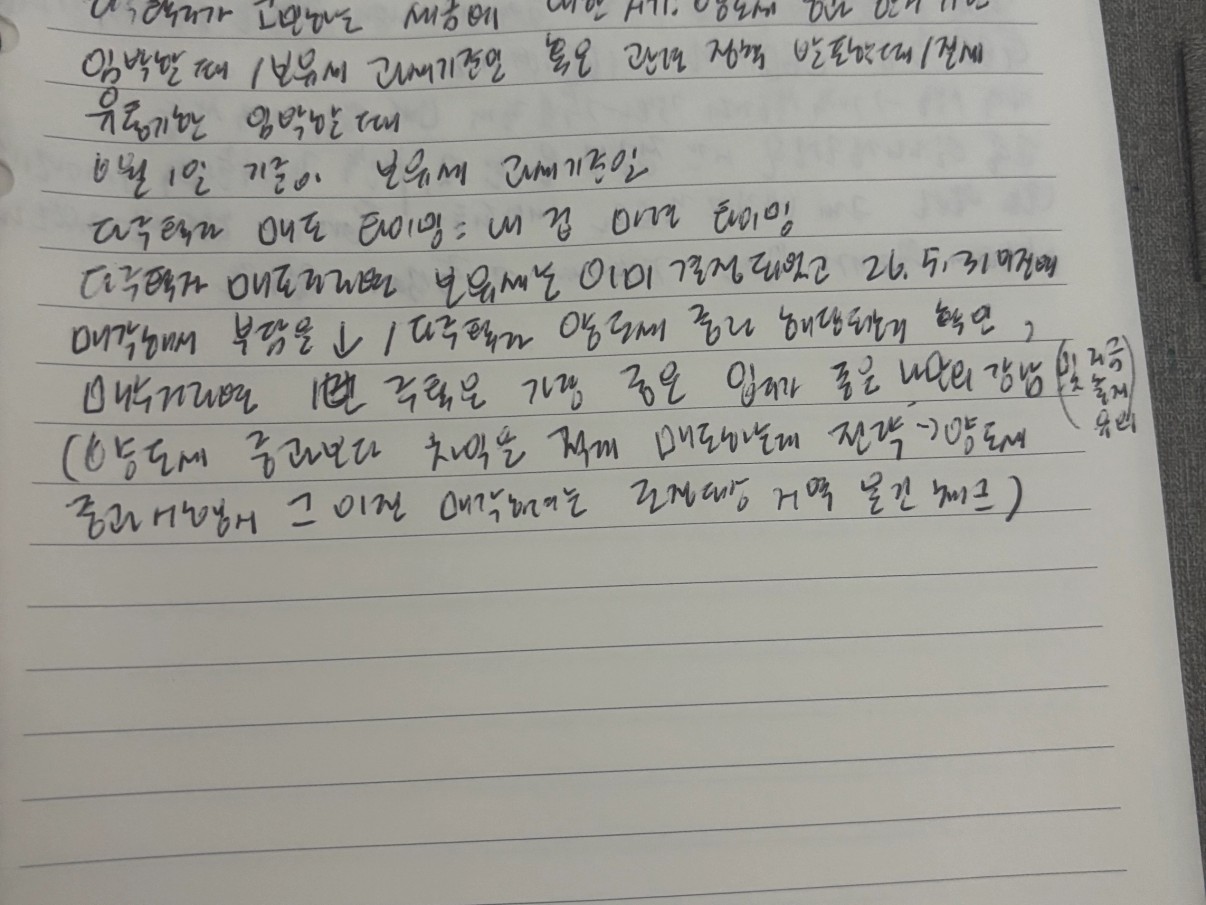 다주택자가 고민하는 세금에 대한 시기: 양도세 중과
임박할 때 / 보유세 과세기준일 혹은 관련 정책 발표할때 / 절세
유통기한 임박할 때
6월 1일 기준이 보유세 과세기준일
다주택자 매도 타이밍 = 내 집 마련 타이밍
다주택자 매도하려면 보유세는 이미 결정되었고 26. 5. 31 이전에
매각해서 부담을 ↓ / 다주택자 양도세 중과 해당되는지 확인,
매수하려면 주택은 가장 좋은 입지가 좋은 나만의 강남 (및 지금
(양도세 중과보다 차익을 적게 매도하는게 전략 → 양도세
중과 시행시 그 이전 매각하려는 조정대상 지역 물건 체크)